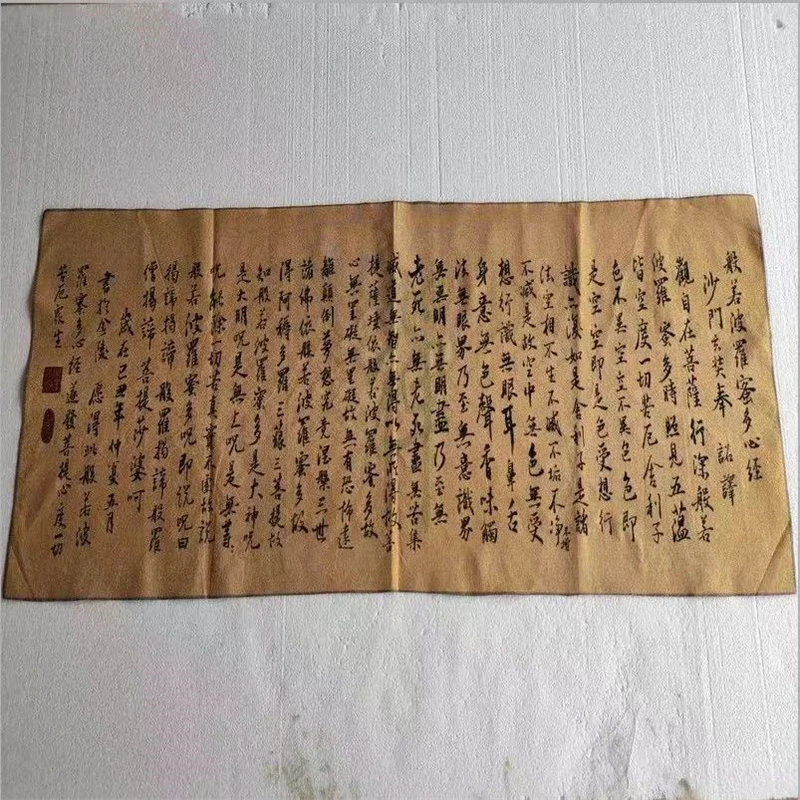 般若波羅蜜多心經
沙門玄奘奉 詔譯
觀自在菩薩行深般若
波羅蜜多時照見五蘊
皆空度一切苦厄舍利子
色不異空空不異色色即
是空空即是色受想行
識亦復如是舍利子是諸
法空相不生不滅不垢不淨不增
不減是故空中無色無受
想行識無眼耳鼻舌
身意無色聲香味觸
法無眼界乃至無意識界
無無明亦無無明盡乃至無
老死亦無老死盡無苦集
滅道無智亦無得以無所得故菩
提薩埵依般若波羅蜜多故
心無罣礙無罣礙故無有恐怖遠
離顛倒夢想究竟涅槃三世
諸佛依般若波羅蜜多故
得阿耨多羅三藐三菩提故
知般若波羅蜜多是大神咒
是大明咒是無上咒是無等
咒能除一切苦真實不虛故說
般若波羅蜜多咒即說咒曰
揭諦揭諦 般羅揭諦般羅
僧揭諦 菩提莎婆呵
歲在己丑年仲夏五月
書於金陵 願得此般若波
羅蜜多心經並發菩提心度一切
苦厄眾生